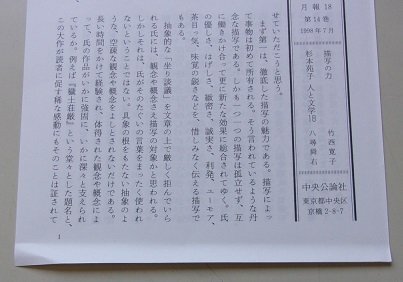 月報18
第14巻
1998年7月
描写の力　竹西寛子
杉本苑子　人と文学18　八尋舜右
中央公論社
東京都中央区
京橋2-8-7
せていただこうと思う。
まず第一は、徹底した描写の魅力である。描写によっ
て事物は初めて所有される。そう言われているような丹
念な描写である。しかも一つ一つの描写は孤立せず、互
に働きかけ合って更に新たな効果に総合されてゆく。氏
の優しさ、はげしさ、緻密さ、誠実さ、利発、ユーモア、
茶目っ気、味覚の鋭さなどを、惜しみなく伝える描写で
もある。
抽象的な「坐り談議」を文章の上で厳しく拒んでいら
れる氏には、観念や概念さえ描写の対象かと思われる。
しかしそれは、氏がそのたぐいの言葉をまったく使われ
ないということではない。具象の根をもたない抽象のよ
うな、空疎な観念や概念をよしとされないだけである。
長い時間をかけて経験され、体得された観念や概念によ
って、氏の作品がいかに強固に、いかに深々と支えられ
ているか。例えば『穢土荘厳』という堂々とした題名と、
この大作が読者に促す稀な感動にもそのことは証されて
1